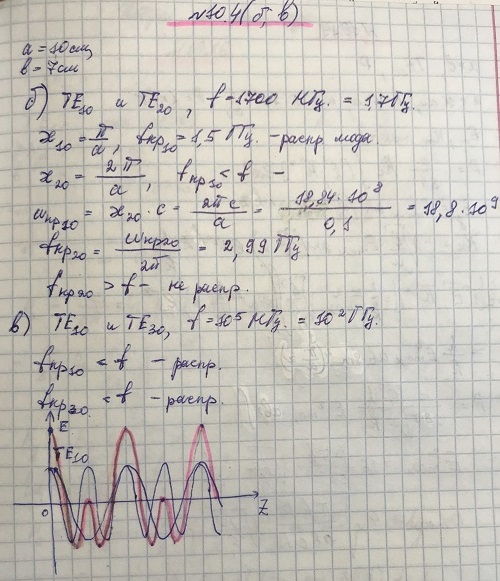 №10.4(б, в)
a = 10см,
в = 7см
б) TE₁₀ и TE₂₀, f = 1700 МГц. = 1,7 ГГц.
æ₁₀ = π/a, fкр₁₀ = 1,5 ГГц. - распр. мода.
æ₂₀ = 2π/a, fкр₁₀ < f -
ωкр₂₀ = æ₂₀ · c = 2πc/a = 18,84 · 10⁸/0,1 = 18,8 · 10⁹
fкр₂₀ = ωкр₂₀/2π = 2,99 ГГц
fкр₂₀ > f - не распр.
в) TE₁₀ и TE₃₀, f = 10⁵ МГц. = 10² ГГц.
fкр₁₀ < f - распр.
fкр₃₀ < f - распр.
E
TE₁₀
0
Z